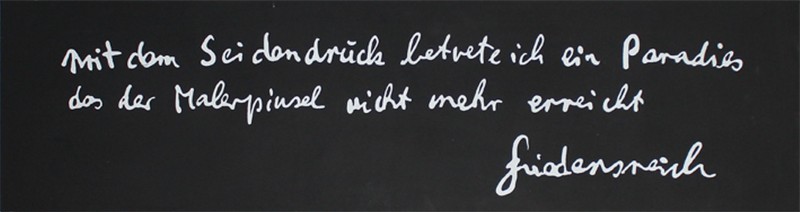 mit dem Seidendrŭck betrete ich ein Paradies
das der Malerpinsel nicht mehr erreicht
friedensreich